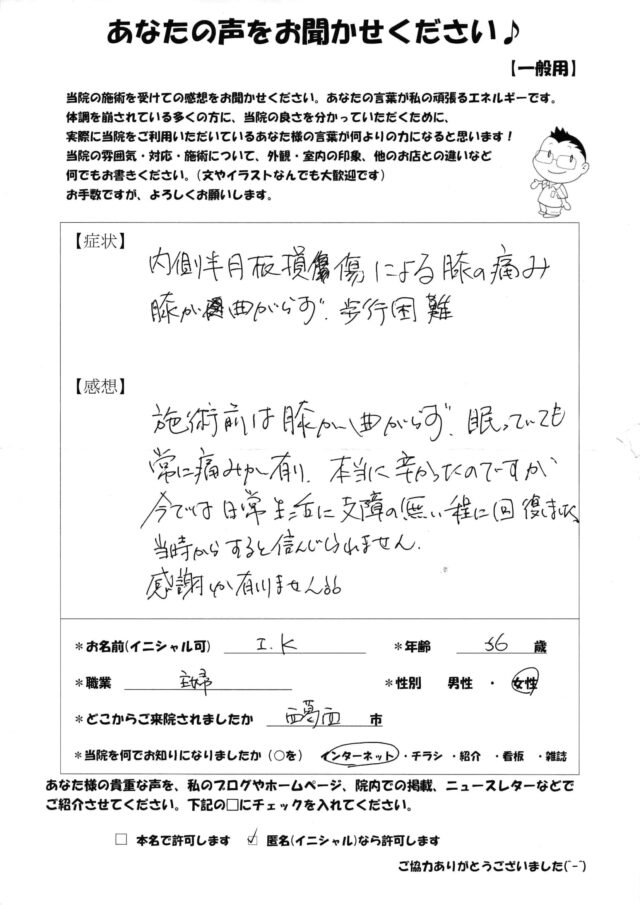 あなたの声をお聞かせください♪
【一般用】
当院の施術を受けての感想をお聞かせください。あなたの言葉が私の頑張るエネルギーです。
体調を崩されている多くの方に、当院の良さを分かっていただくために、
実際に当院をご利用いただいているあなた様の言葉が何よりの力になると思います！
当院の雰囲気・対応・施術について、外観・室内の印象、他のお店との違いなど
何でもお書きください。(文やイラストなんでも大歓迎です)
お手数ですが、よろしくお願いします。
【症状】
内側半月板損傷による膝の痛み
膝が曲がらず、歩行困難
【感想】
施術前は膝が曲がらず、眠っていても
常に痛みが有り、本当に辛かったのですが
今では日常生活に支障の無い程に回復しました
当時からすると信じられません。
感謝しか有りません
＊お名前(イニシャル可) I.K ＊年齢 36 歳
＊職業 主婦 ＊性別 男性 ・ 女性
＊どこからご来院されましたか 西葛西 市
＊当院を何でお知りになりましたか (○を) インターネット ・チラシ ・紹介 ・看板 ・雑誌
あなた様の貴重な声を、私のブログやホームページ、院内での掲載、ニュースレターなどで
ご紹介させてください。下記の□にチェックを入れてください。
□ 本名で許可します ☑ 匿名(イニシャル)なら許可します
ご協力ありがとうございました(^-^)